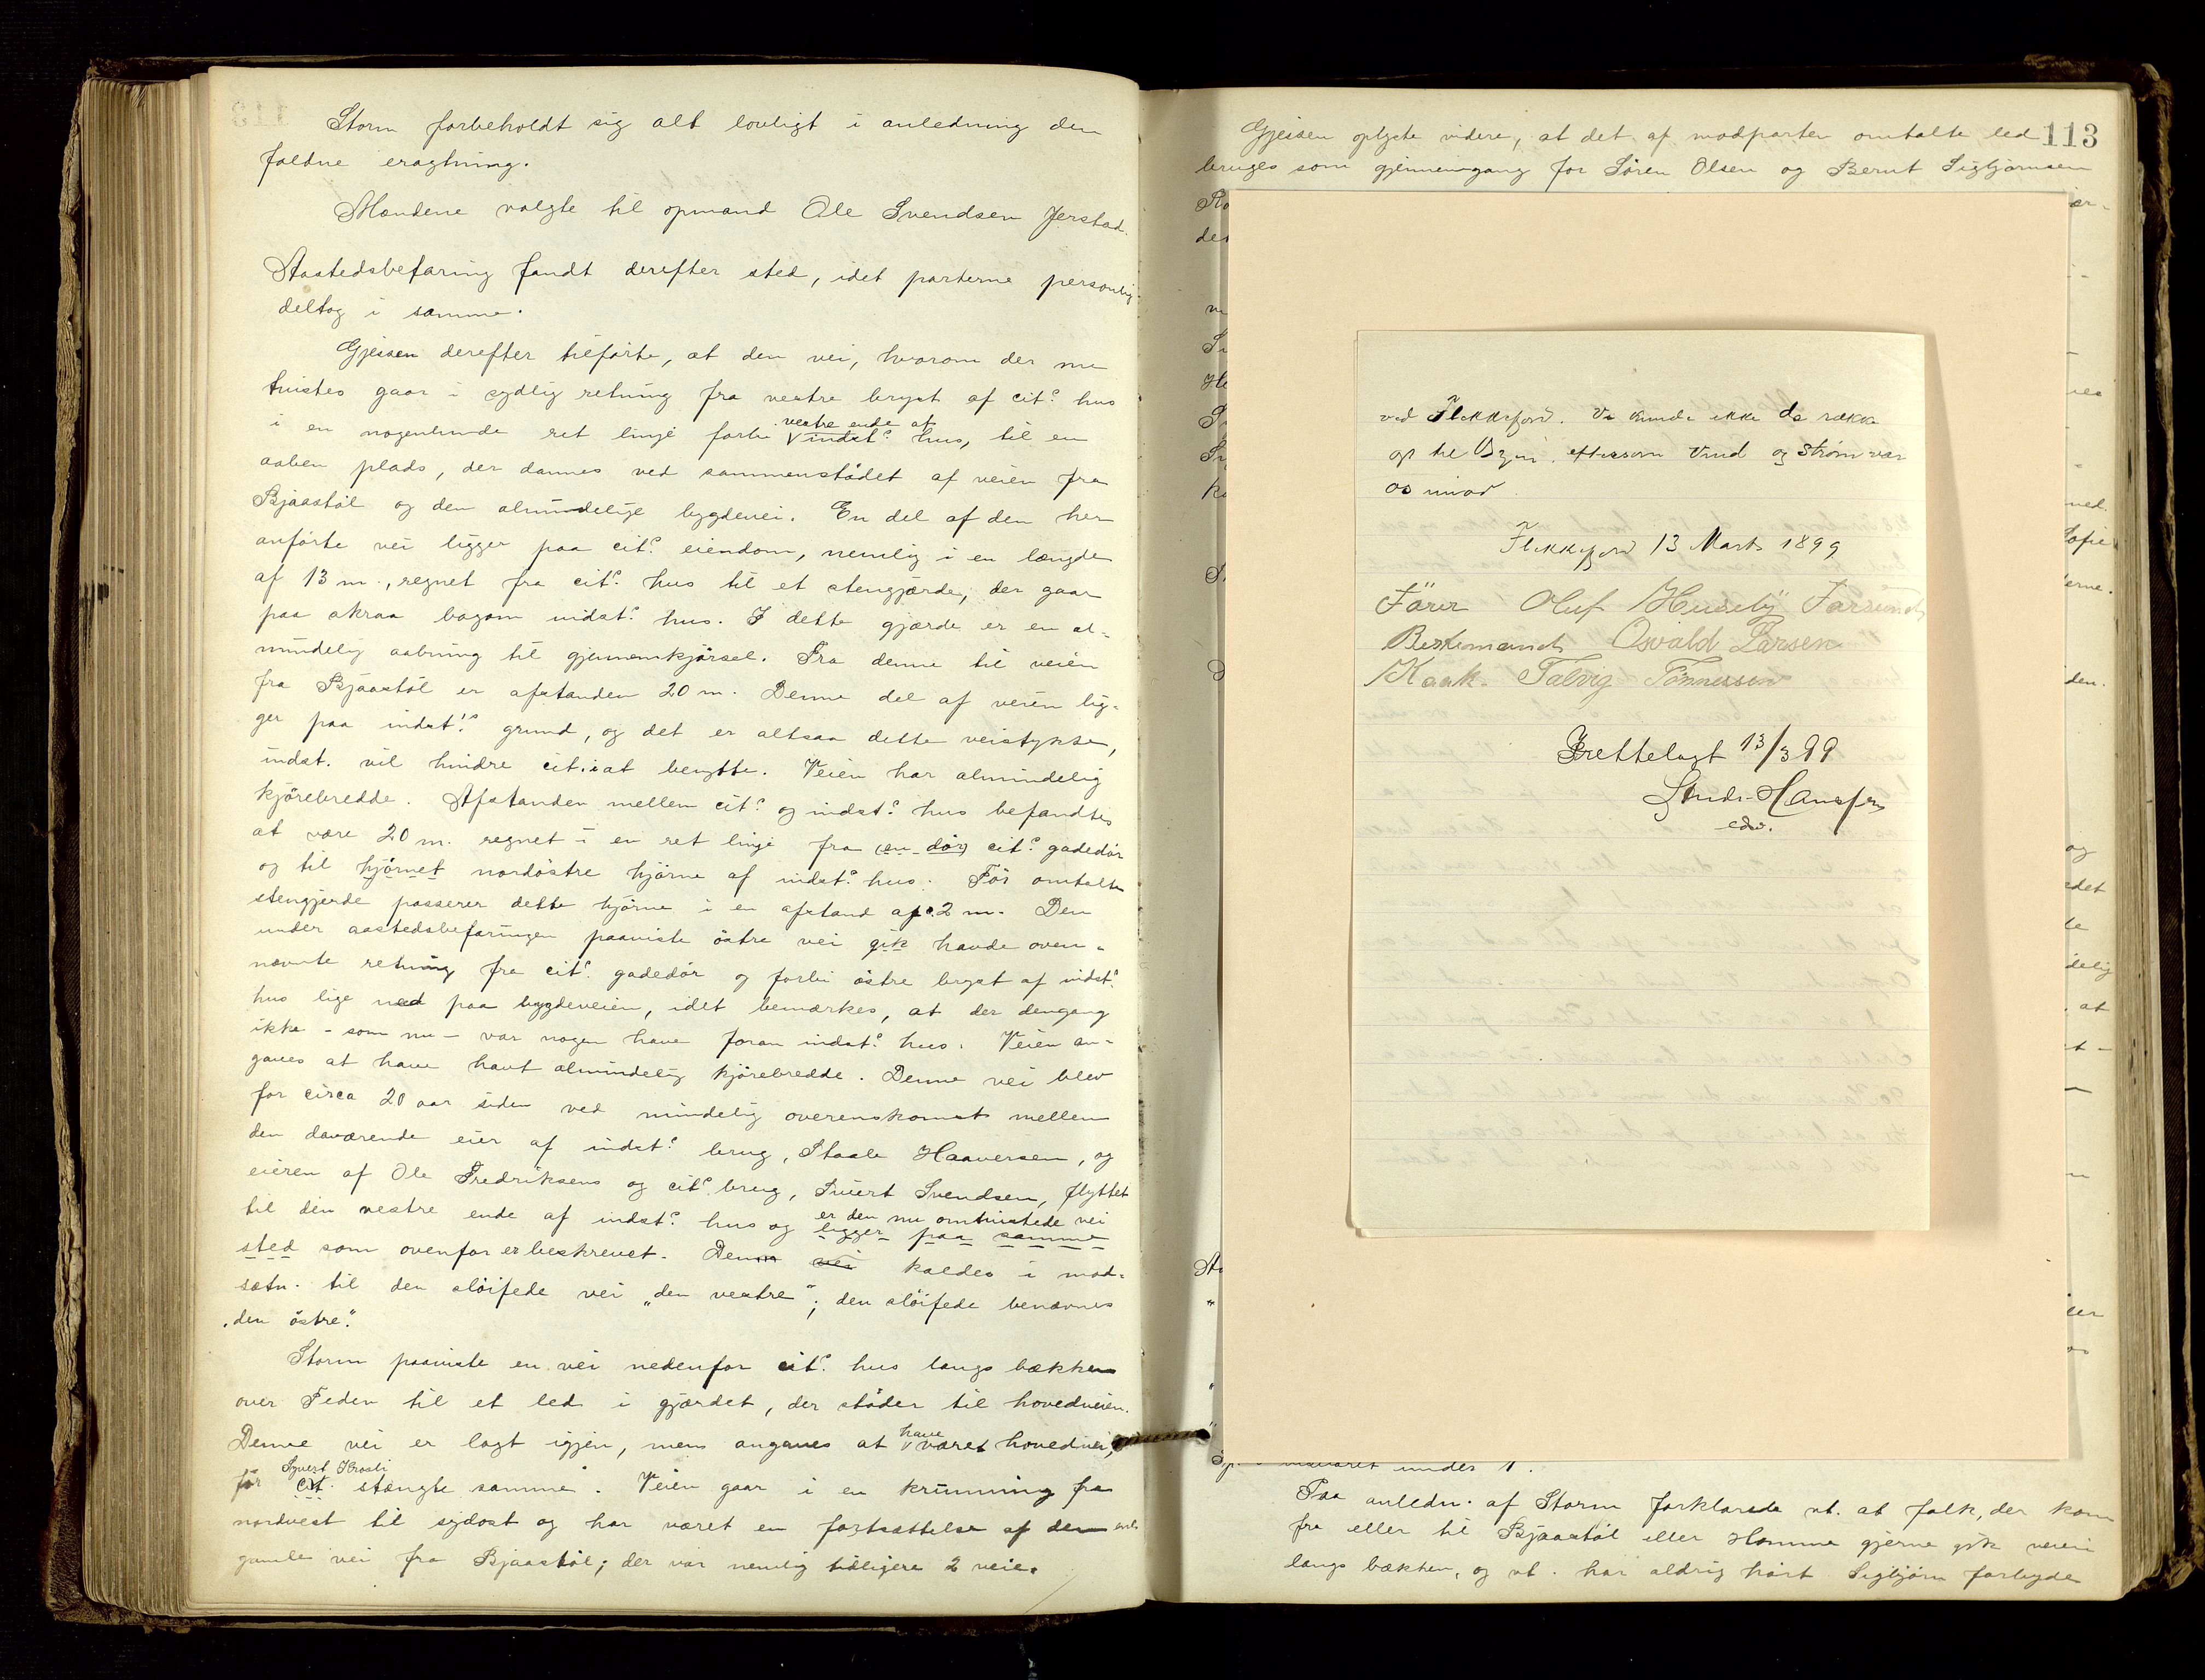 Storm forbeholdt sig alt lovligt i anledning den
faldne eragtning.
Mændene valgte til opmand Ole Svendsen Jerstad.
Aastedsbefaring fandt derefter sted, idet parterne personlig
deltog i samme.
Gjessen derefter tilførte, at den vei, hvorom der nu
tvistes gaar i sydlig retning fra vestre bryst af cit.s hus
i en nogenlunde ret linje forbi vestre ende af indst.s hus, til en
aaben plads, der dannes ved sammenstødet af veien fra
Bjaastøl og den almindelige bygdevei. En del af den her
anførte vei ligger paa cit.s eiendom, nemlig i en længde
af 13 m., regnet fra cit.s hus til et stengjærde, der gaar
paa skraa bagom indst.s hus. I dette gjærde er en al-
mindelig aabning til gjennemkjørsel. Fra denne til veien
fra Bjaastøl er afstanden 20 m. Denne del af veien lig-
ger paa indst.s grund, og det er altsaa dette veistykke,
indst. vil hindre cit. i at benytte. Veien har almindelig
kjørebredde. Afstanden mellem cit.s og indst.s hus befandtes
at være 20 m. regnet i en ret linje fra (en dør) cit.s gadedør
og til hjørnet nordøstre hjørne af indst.s hus. Før omtalte
stengjerde passerer dette hjørne i en afstand af c. 2 m. Den
under aastedsbefaringen paaviste østre vei gik havde oven-
nævnte retning fra cit.s gadedør og forbi østre bryst af indst.s
hus lige ned paa bygdeveien, idet bemærkes, at der dengang
ikke - som nu - var nogen have foran indst.s hus. Veien an-
gaves at have havt almindelig kjørebredde. Denne vei blev
for circa 20 aar siden ved mindelig overenskomst mellem
den daværende eier af indst.s brug, Staale Haaversen, og
eieren af Ole Fredriksens og cit.s brug, Sivert Svendsen, flyttet
til den vestre ende af indst.s hus og er den nu omtvistede vei
ligger paa samme
sted som ovenfor er beskrevet. Denne vei kaldes i mod-
sætn. til den sløifede vei "den vestre"; den sløifede benævnes
"den østre".
Storm paaviste en vei nedenfor cit.s hus langs bækken
over Feden til et led i gjærdet, der støder til hovedveien.
Denne vei er lagt igjen, mens angaves at have været hovedvei,
før Syvert Krosli cit. stængte samme. Veien gaar i en krumning fra
nordvest til sydost og har været en fortsættelse af den
gamle vei fra Bjaastøl; der var nemlig tidligere 2 veie.
113
Gjessen oplyste videre, at det af modparten omtalte led
bruges som gjennemgang for Søren Olsen og Bernt Sigbjørnsen
ved Flekkefjord. Vi kunde ikke da række
op til Byen, eftersom Vind og Strøm var
os imod
Flekkefjord 13 Marts 1899
Fører Oluf Huseby Farsund
Bestemand Osvald Larsen
Kok Talvig Tønnessen
Frettelagt 13/3 99
den.
og
at
Paa anledn. af Storm forklarede vt. at folk, der kom
fra eller til Bjaastøl eller Homme gjerne gik veien
langs bækken, og vt. har aldrig hørt Sigbjørn forbyde